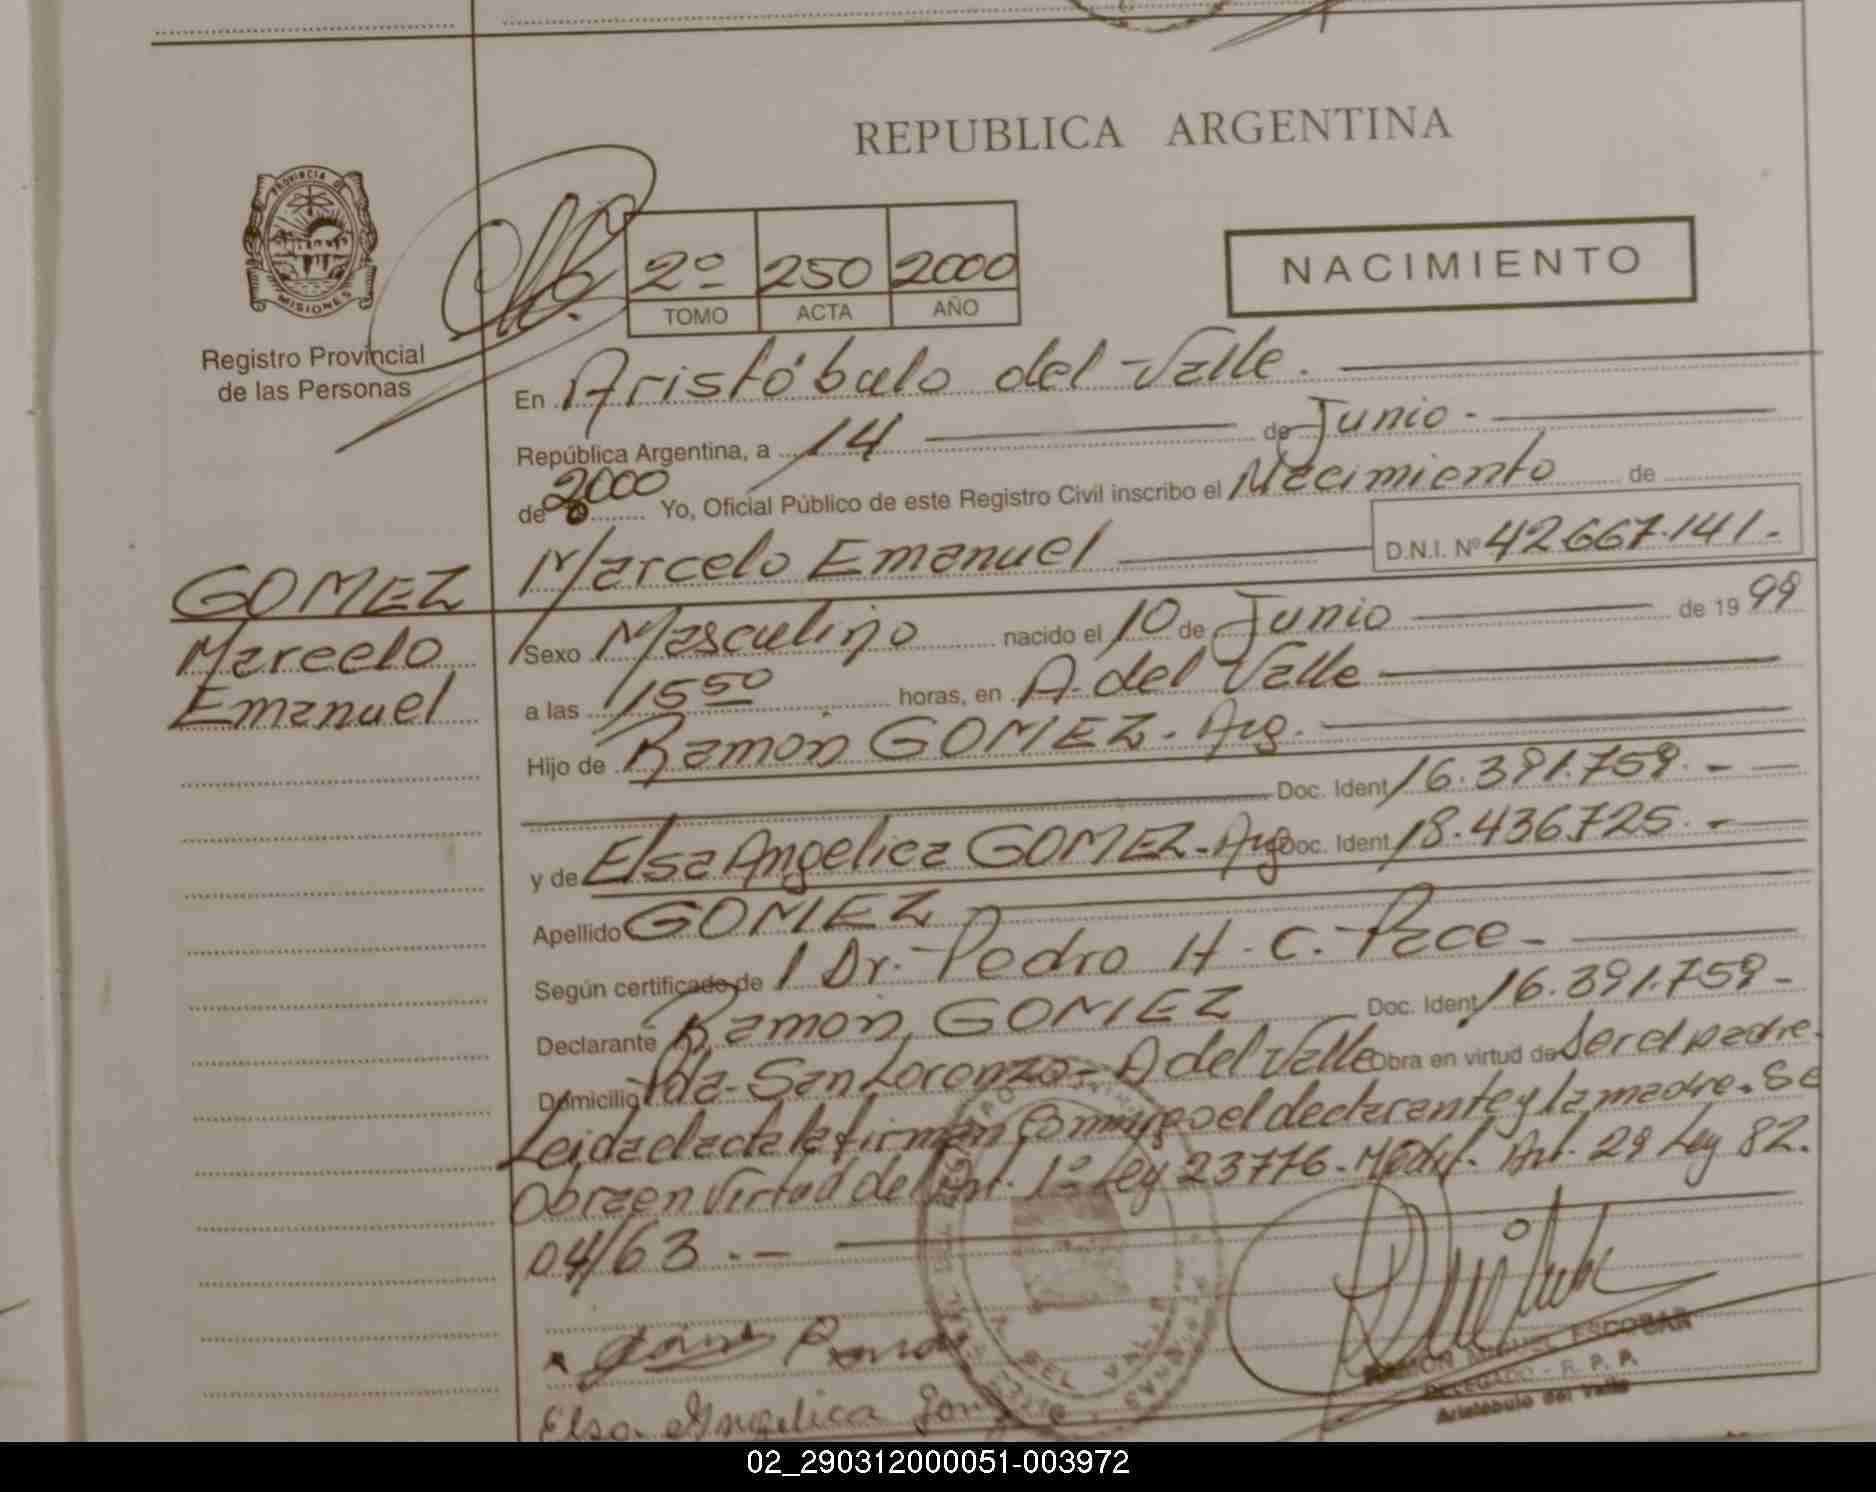 REPUBLICA ARGENTINA
PROVINCIA DE
MISIONES
Registro Provincial
de las Personas
2º 250 2000
TOMO ACTA AÑO
NACIMIENTO
En Aristóbulo del Valle.
República Argentina, a 14 de Junio.
de 2000 Yo, Oficial Público de este Registro Civil inscribo el Nacimiento de
Marcelo Emanuel D.N.I. Nº 42.667.141.-
GOMEZ
Marcelo
Emanuel
Sexo Masculino nacido el 10 de Junio de 19 99
a las 15 50 horas, en A. del Valle
Hijo de Ramón GOMEZ. Arg.
Doc. Ident 16.391.759.-
y de Elsa Angelica GOMEZ. Arg Doc. Ident 18.436.725.-
Apellido GOMEZ
Según certificado de 1 Dr. Pedro H. C. Pace-
Declarante Ramón GOMEZ Doc. Ident 16.391.759-
Domicilio Pda. San Lorenzo- A del Valle Obra en virtud de ser el padre.
Leida el acta la firman Conmigo el declarante y la madre. Se
Obra en virtud del Art. 1º Ley 23776. Modif. Art. 29 Ley 82.
04/63.-
DEL VALLE
Elsa Angelica
RAMON MIGUEL ESCOBAR
DELEGADO - R. P. P.
Aristóbulo del Valle
02_290312000051-003972